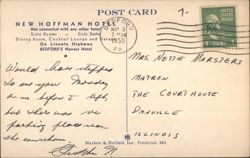 POST CARD
NEW HOFFMAN HOTEL
Not connected with any other hotel
State Rooms - State Baths
Dining Room, Cocktail Lounge and
On Lincoln Highway
BEDFORD'S Newest Hotel
BEDFORD
PA.
MAY 9
1950
Would have stopped
to see you Monday
before I left,
but there was no
parking place near
the courthouse.
Mrs. Nettie Marsters
Matron
The Court House
Danville
Illinois
Marken & Bielfeld, Inc., Frederick, Md.